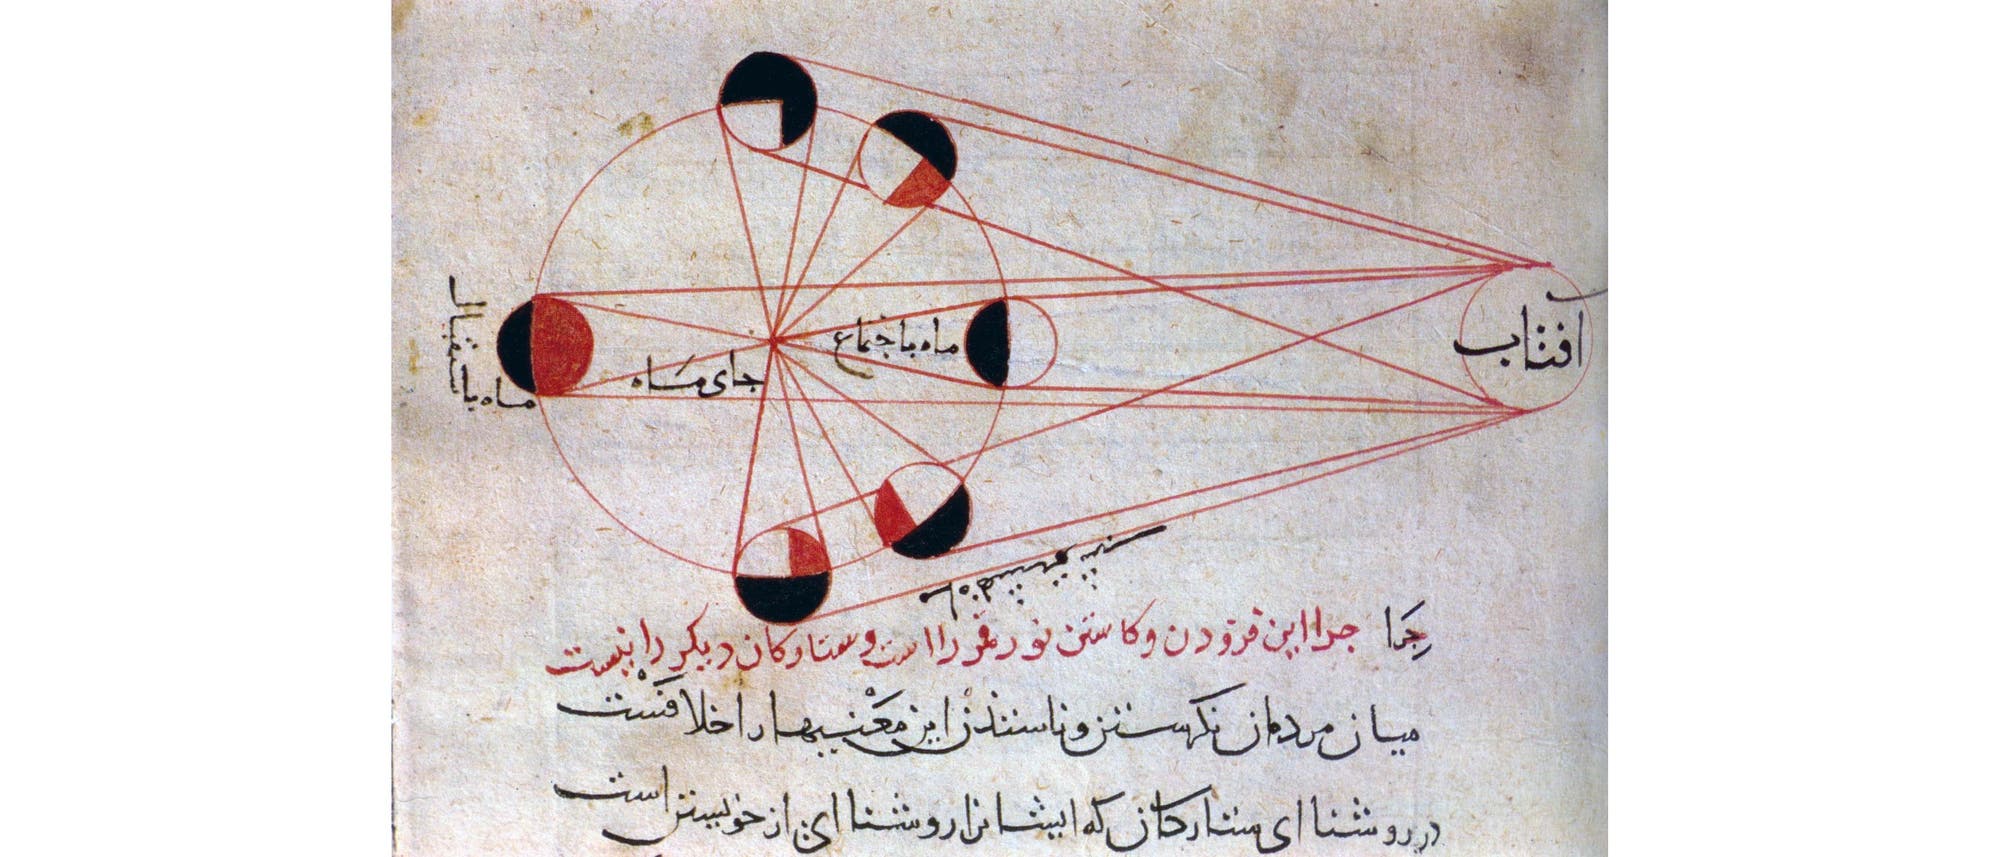 افتاب
ماه باجتماع
جای مَاه
ماه باستقبال
جِرَا جرا این فزودن وکاستن نور قمر را است و ستارکان دیکر را نیست
میان مردمان نکرستن این معنیها را خلافست
در روشنا ای ستارکان که ایشانرا روشنا ای از خویشتن است